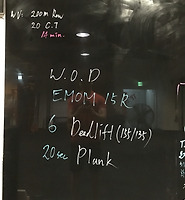 WU: 200m Row
20 C.T
10 min.
W.O.D
EMOM 15 R
6 Deadlift (135/135)
20sec Plank